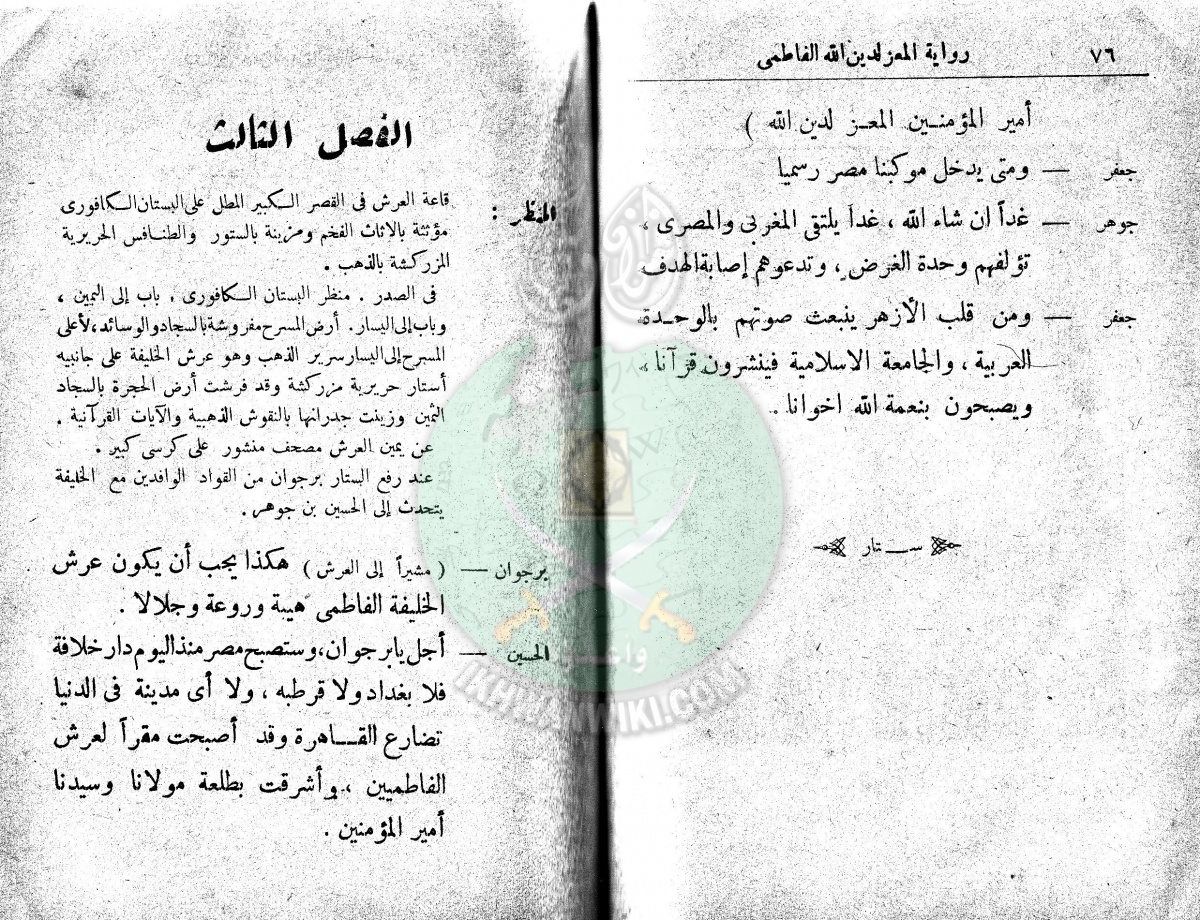 ٧٦
رواية المعز لدين الله الفاطمى
أمير المؤمنـين المعـز لدين الله )
جعفر — ومتى يدخل موكبنا مصر رسميا
جوهر — غداً ان شاء الله ، غداً يلتقى المغربى والمصرى ،
تؤلفهم وحدة الغرض ، وتدعوهم إصابة الهدف
جعفر — ومن قلب الأزهر ينبعث صوتهم بالوحـدة
العربية ، والجامعة الاسلامية فينشرون قرآنا ،
ويصبحون بنعمة الله اخوانا .
ستار
الفصل الثالث
المنظر : قاعة العرش فى القصر الكبير المطل على البستان الكافورى
مؤثثة بالاثاث الفخم ومزينة بالستور والطنافس الحريرية
المزركشة بالذهب .
فى الصدر . منظر البستان الكافورى . باب إلى اليمين ،
وباب إلى اليسار . أرض المسرح مفروشة بالسجاد والوسائد ، لأعلى
المسرح إلى اليسار سرير الذهب وهو عرش الخليفة على جانبيه
أستار حريرية مزركشة وقد فرشت أرض الحجرة بالسجاد
الثمين وزينت جدرانها بالنقوش الذهبية والآيات القرآنية .
عن يمين العرش مصحف منشور على كرسى كبير .
عند رفع الستار برجوان من القواد الوافدين مع الخليفة
يتحدث إلى الحسين بن جوهر .
برجوان — ( مشيراً إلى العرش ) هكذا يجب أن يكون عرش
الخليفة الفاطمى هيبة وروعة وجلالا .
الحسين — أجل يا برجوان ، وستصبح مصر منذ اليوم دار خلافة
فلا بغداد ولا قرطبه ، ولا أى مدينة فى الدنيا
تضارع القـاهرة وقد أصبحت مقراً لعرش
الفاطميين ، وأشرقت بطلعة مولانا وسيدنا
أمير المؤمنين .
وأعدوا
IKHWANWIKI.COM